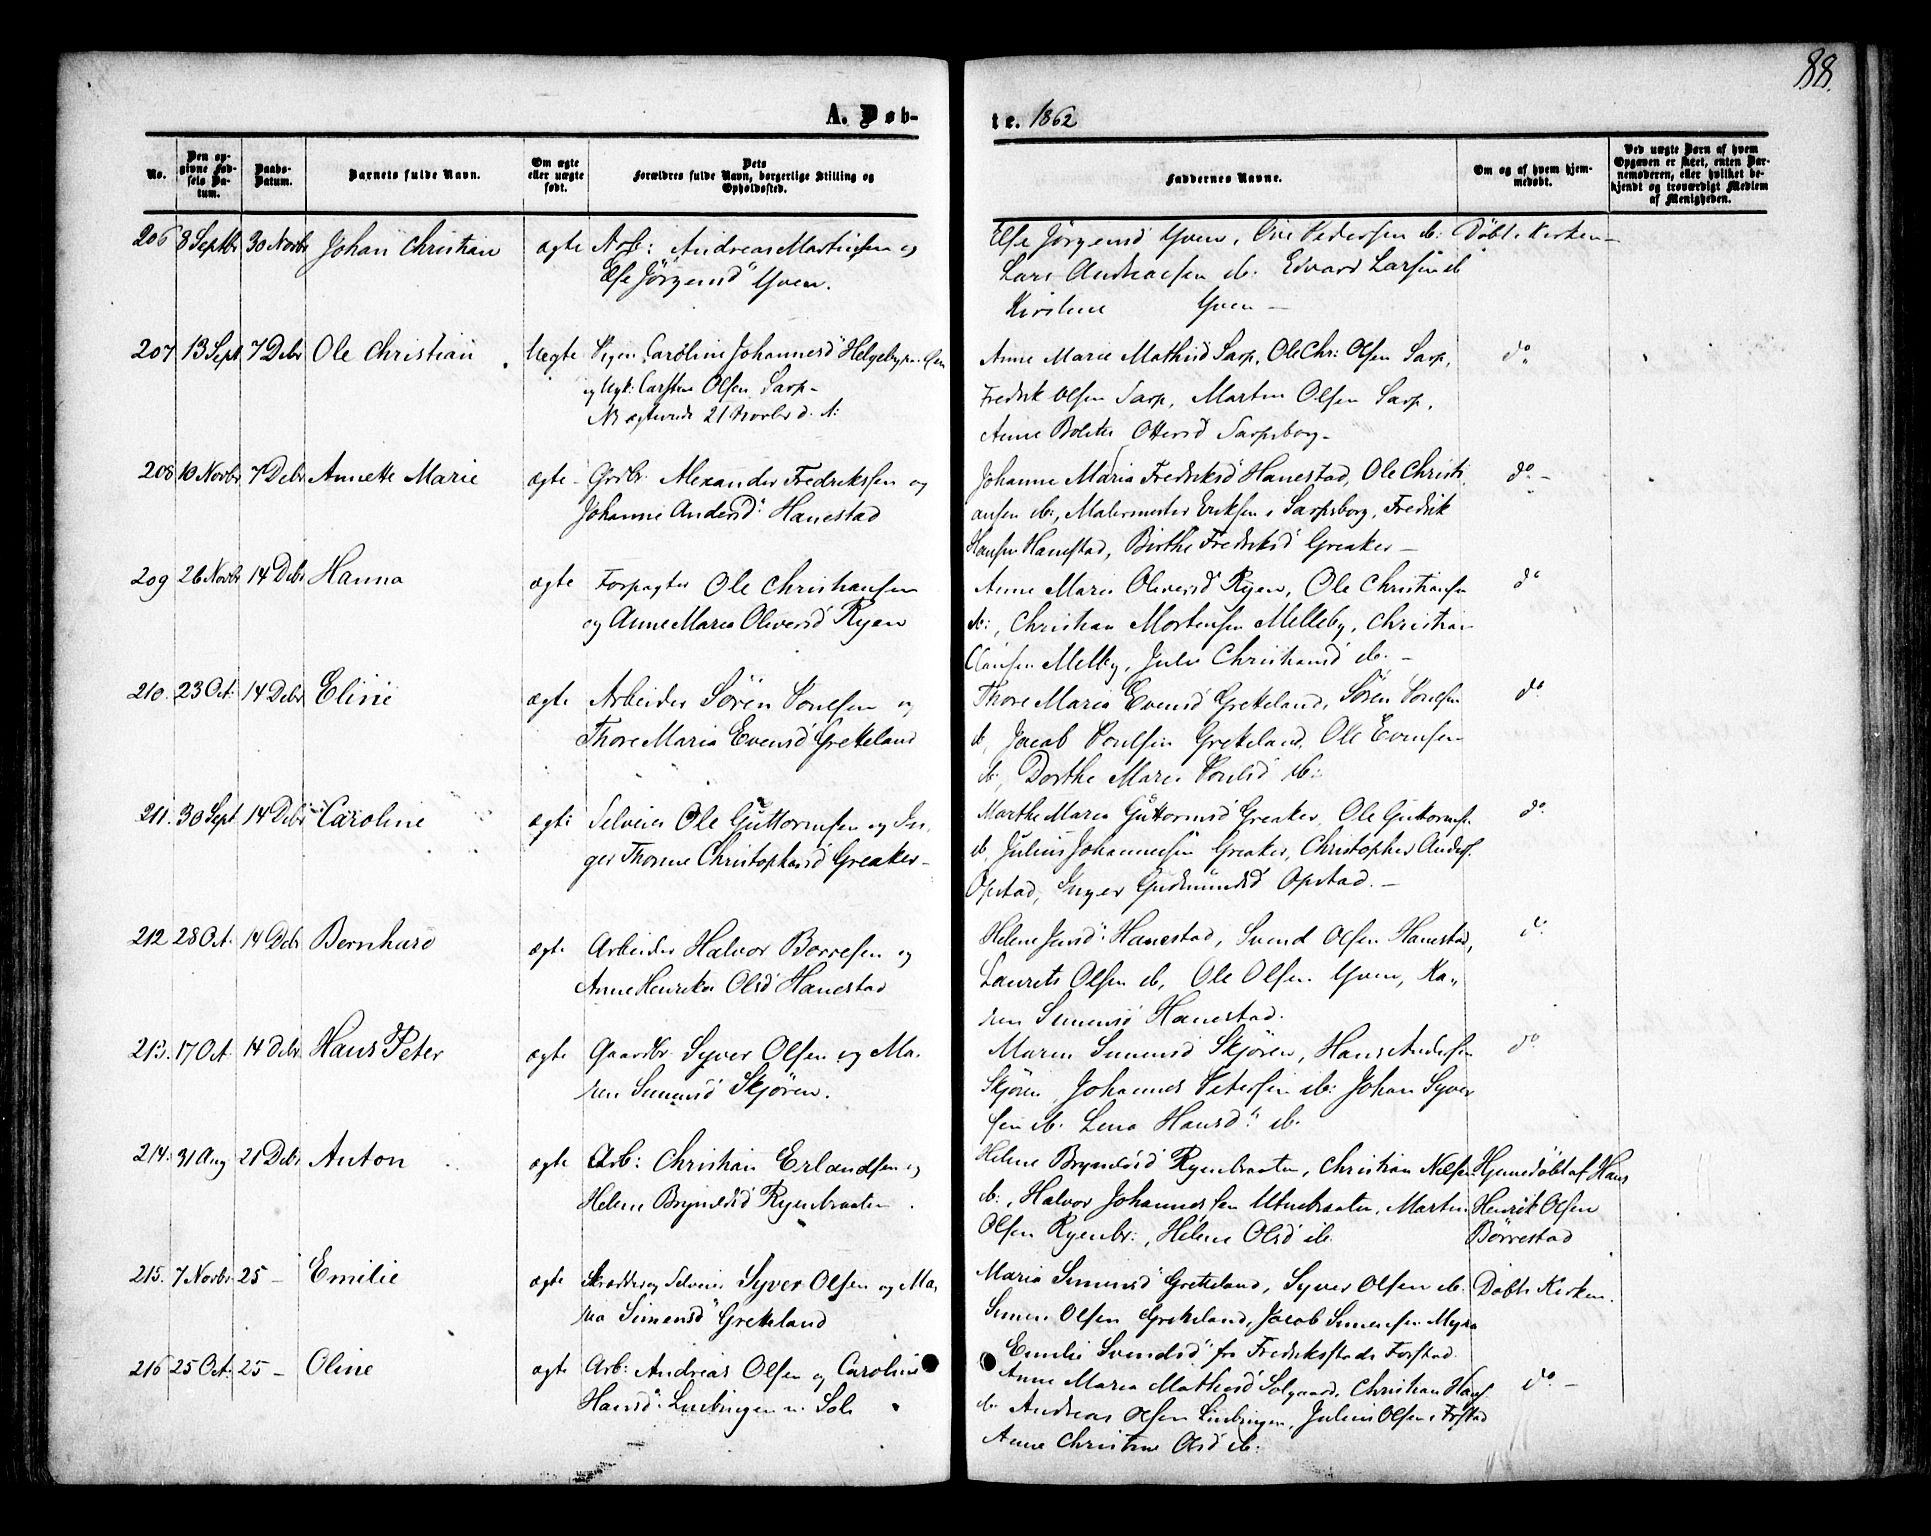 88.
A. Døb-
te. 1862
No.
Den op-
givne Fød-
sels Da-
tum.
Daabs-
Datum.
Barnets fulde Navn.
Om ægte
eller uægte
født.
Dets
Forældres fulde Navn, borgerlige Stilling og
Opholdssted.
Faddernes Navne.
Om og af hvem hjem-
medøbt.
Ved uægte Børn af hvem
Opgaven er skeet, enten Bar-
nemoderen, eller hvilket be-
kjendt og troværdigt Medlem
af Menigheden.
206 8 Septbr 30 Novbr Johan Christian ægte Arb: Andreas Martinsen og
Else Jörgensd Yven.
Else Jörgensd Yven, Ove Pedersen ib: Döbt i Kirken
Lars Andreasen ib: Edvard Larsen ib
Kirstene Yven
207 13 Sept 7 Debr Ole Christian Uegte Pigen Caroline Johannesd Helgeby
og Ugk: Carsten Olsen Sarp
NB ægteviede 21 Novbr d. A:
Anne Marie Mathisd Sarp, Ole Chr: Olsen Sarp, do
Fredrik Olsen Sarp, Martin Olsen Sarp,
Anne Bolette Ottersd Sarpsborg
208 10 Novbr 7 Debr Annette Marie ægte Grdbr. Alexander Fredriksen og
Johanne Andersd: Hanestad
Johanne Maria Fredriksd Hanestad, Ole Christi do
ansen ib:, Malermester Eriksen i Sarpsborg, Fredrik
Hansen Hanestad, Birthe Fredriksd Greaker
209 26 Novbr 14 Debr Hanna ægte Forpagter Ole Christiansen
og Anne Maria Oliversd Ryen
Anne Maria Oliversd Ryen, Ole Christiansen do
ib:, Christian Mortensen Melleby, Christian
Clausen Melleby, Julie Christiansd ib:
210. 23 Oct: 14 Debr Eline ægte Arbeider Sören Poulsen og
Thore Maria Evensd Grekeland
Thore Maria Evensd Grekeland, Sören Poulsen do
ib, Jacob Poulsen Grekeland, Ole Evensen
ib, Dorthe Maria Poulsd ib:
211. 30 Sept 14 Debr Caroline ægte Selveier Ole Guttormsen og In-
ger Thonne Christophersd Greaker
Marthe Maria Guttormsd Greaker, Ole Guttormsen do
ib, Julius Johannesen Greaker, Christopher Anders.
Opstad, Inger Gudmundsd Opstad.
212 28 Oct. 14 Debr Bernhard ægte Arbeider Halvor Borresen og
Anne Henrikke Olsd Hanestad
Helene Jensd: Hanestad, Svend Olsen Hanestad, do
Laurits Olsen ib, Ole Olsen Yven, Ka-
ren Simensd Hanestad.
213. 17 Oct. 14 Debr Hans Peter ægte Gaardbr Syver Olsen og Ma-
ren Simensd Skjören.
Maren Simensd Skjören, Hans Andersen do
Skjören, Johannes Petersen ib: Johan Syver
sen ib. Lena Hansd: ib.
214. 31 Aug 21 Debr Anton ægte Arb: Christian Erlandsen og
Helene Brynildsd Ryenbraaten
Helene Brynildsd Ryenbraaten, Christian Nilsen Hjemmedöbt af Hans
ib:, Halvor Johannessen Utnebraaten, Martin Henrik Olsen
Olsen Ryenbr:, Helene Olsd ib. Börrestad
215. 7 Novbr 25 - Emilie ægte Skrædder og Selveier Syver Olsen og Ma-
ria Simensd Grekeland
Maria Simensd Grekeland, Syver Olsen ib. Döbt i Kirken.
Simen Olsen Grekeland, Jacob Simensen Myra
Emilie Svendsd fra Fredriksstads Forstad.
216 25 Oct. 25 - Oline ægte Arb: Andreas Olsen og Caroline
Hansd: Lunbingen u. Soli
Anne Maria Mathisd Solgaard, Christian Hans. do
ib. Andreas Olsen Linbingen, Julius Olsen i Forstad
Anne Christine Olsd ib: